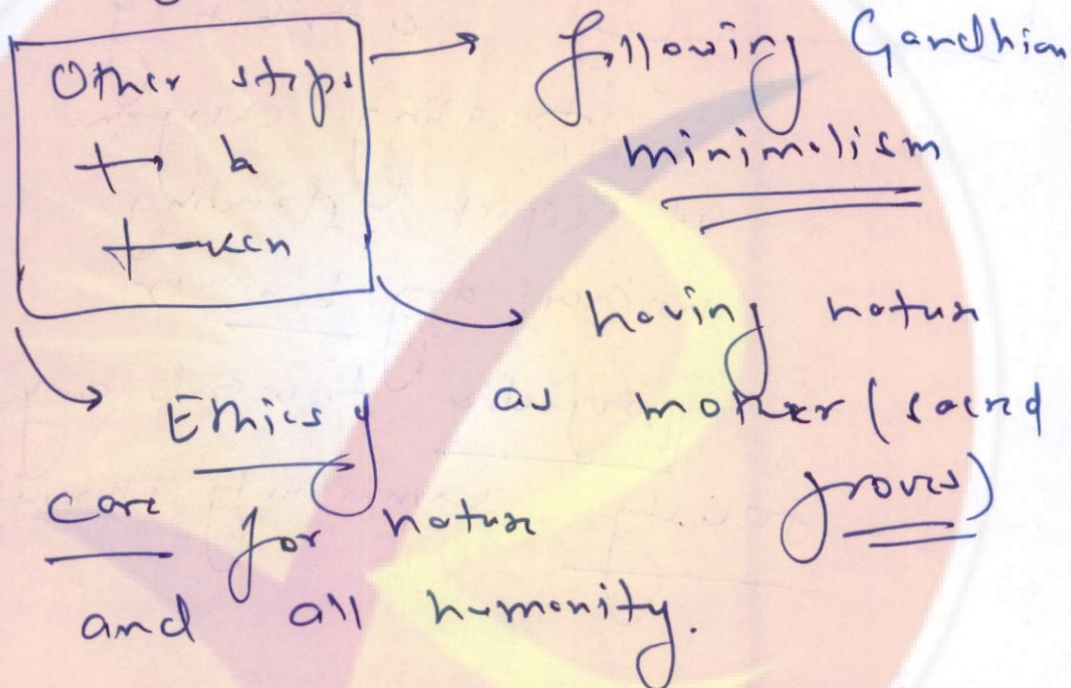 Other steps
to be
taken
following Gandhian
minimalism
having nature
as mother (sacred
groves)
Ethics of
care for nature
and all humanity.